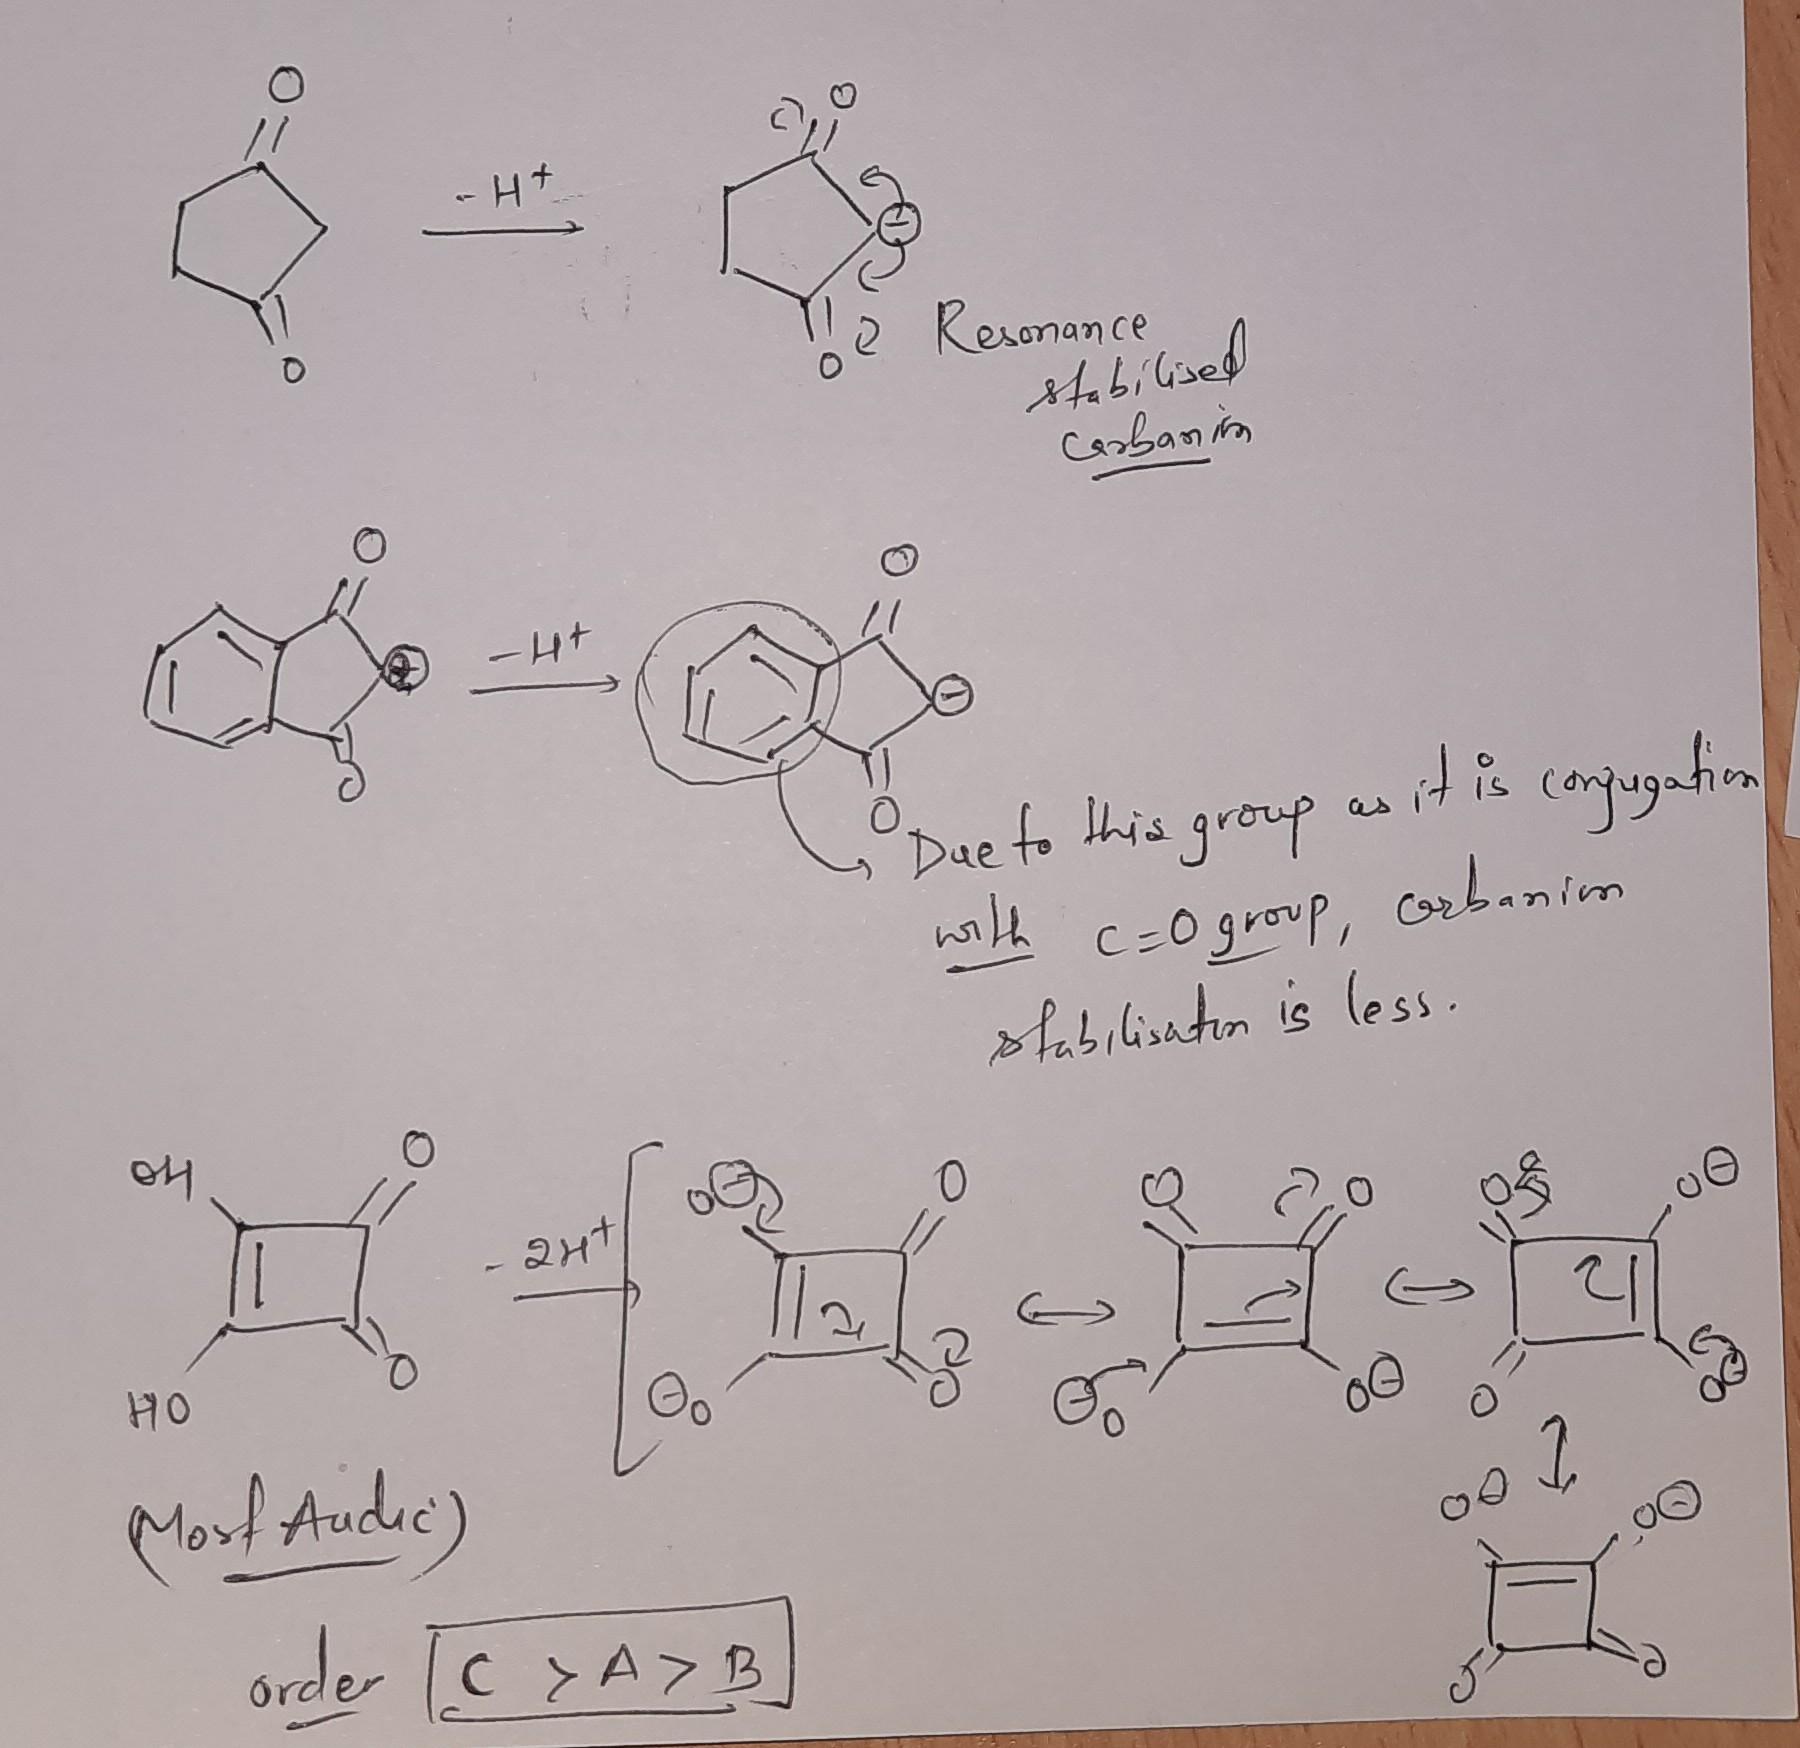 O
O
-H+
O
⊖
O
Resonance
stabilised
carbanion
O
O
-H+
O
⊖
O
Due to this group as it is conjugation
with C=O group, carbanion
stabilisation is less.
OH
O
HO
O
-2H+
O⊖
O
⊖O
O
O
O
⊖O
O⊖
O
O⊖
O
O⊖
O⊖
O⊖
O
O
(Most Acidic)
order C > A > B